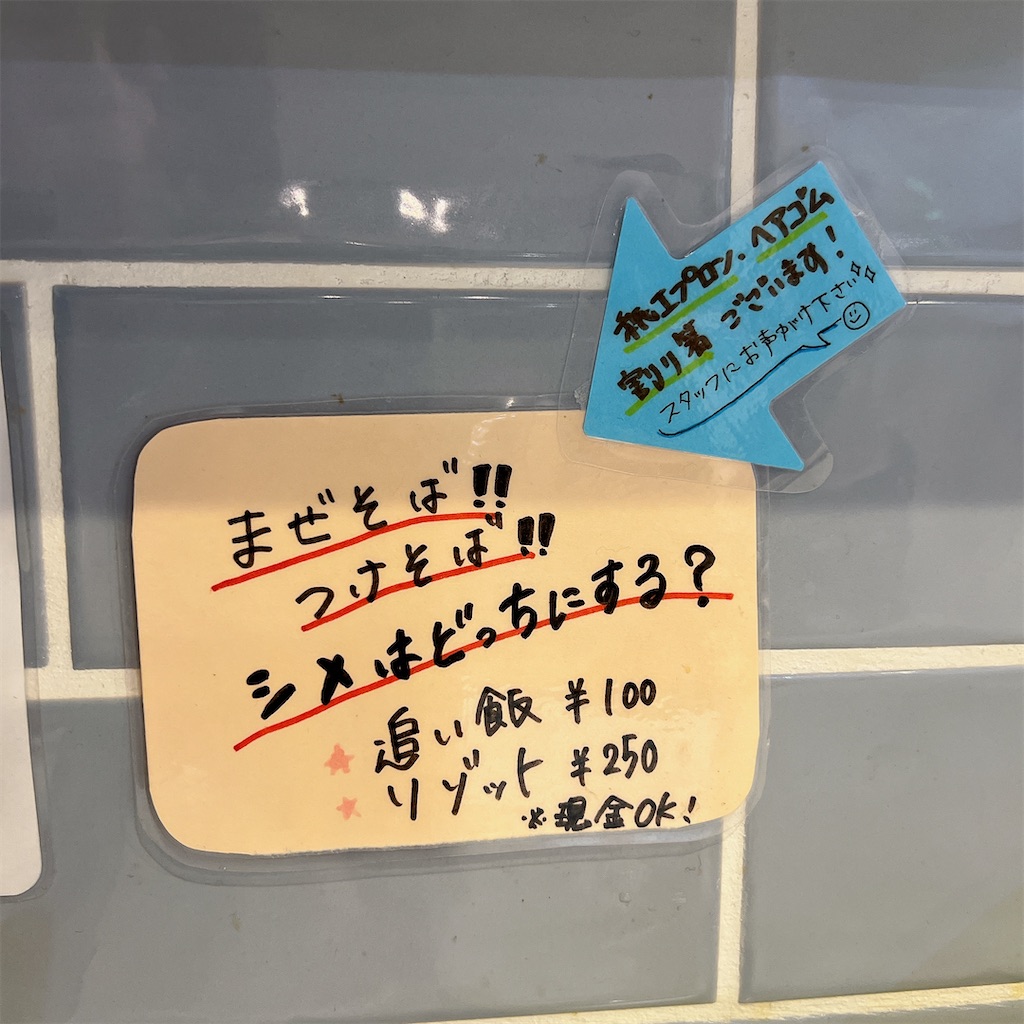 紙エプロン、ヘアゴム
割り箸 ございます!
スタッフにお声がけ下さい
まぜそば!!
つけそば!!
シメはどっちにする?
追い飯 ¥100
リゾット ¥250
※現金OK!